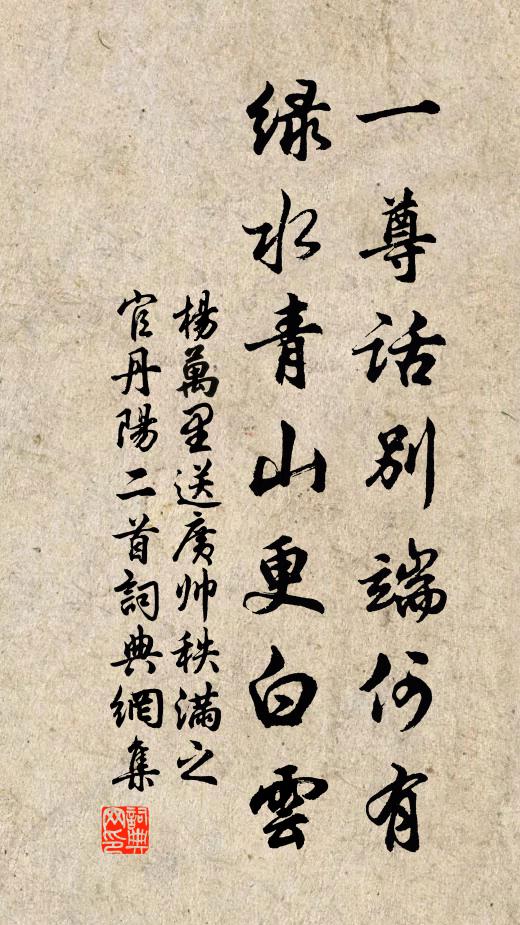 一尊话别端何有
绿水青山更白雲
楊萬里送廣帅秩满之
官丹陽二首詞典網集
詞典网印